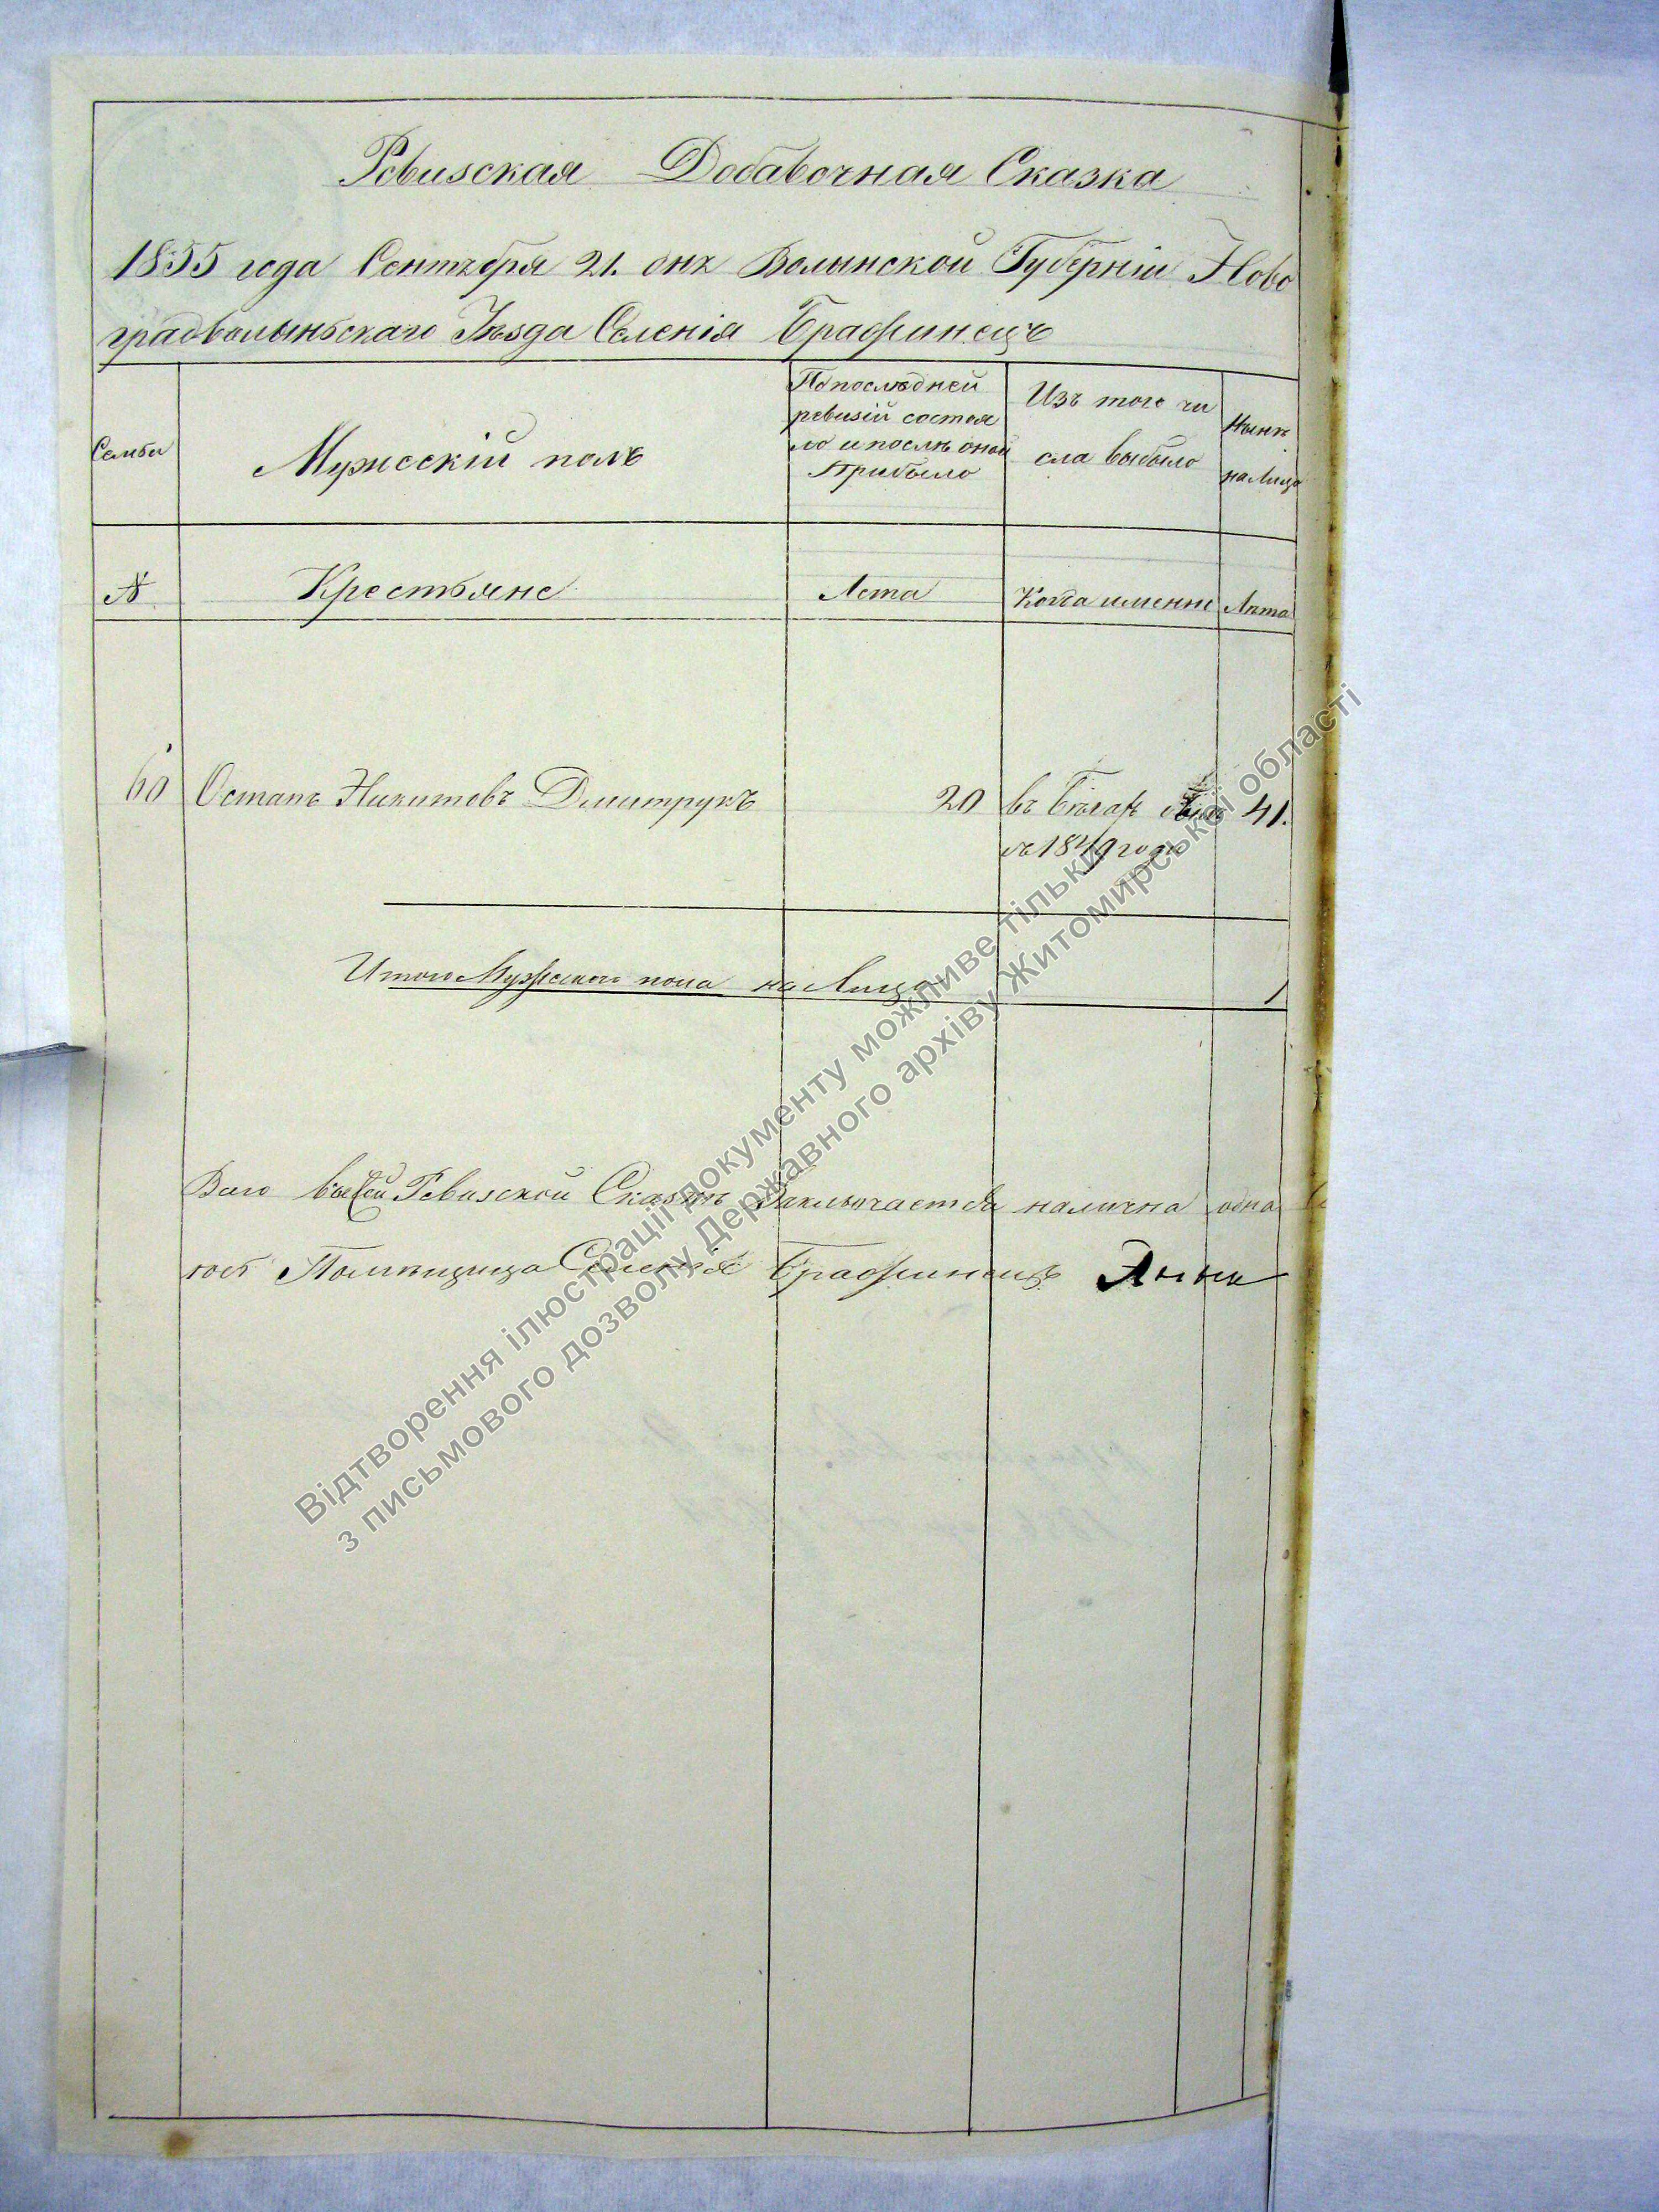 Ревизская Добавочная Сказка
1855 года Сентября 21. дня Волынской Губерніи Ново
градволыньскаго Уѣзда Селенія Бражинецъ
Семьи
Мужескій полъ
По последней
ревизіи состоя
ло и послѣ оной
Прибыло
Изъ того чи
сла выбыло
Нынѣ
на Лицо
№
Крестьяне
Лета
Когда именно
Лѣта
60 Остапъ Никитовъ Дмитрукъ 20 въ бѣгах 41.
съ 1849 года
Итого Мужеска пола на Лицо 1
Всего въ сей Ревизской Сказкѣ Заключается налична одна
Помѣщица Селенія Бражинецъ Анна
Відтворення ілюстрації документу можливе тільки
з письмового дозволу Державного архіву Житомирської області